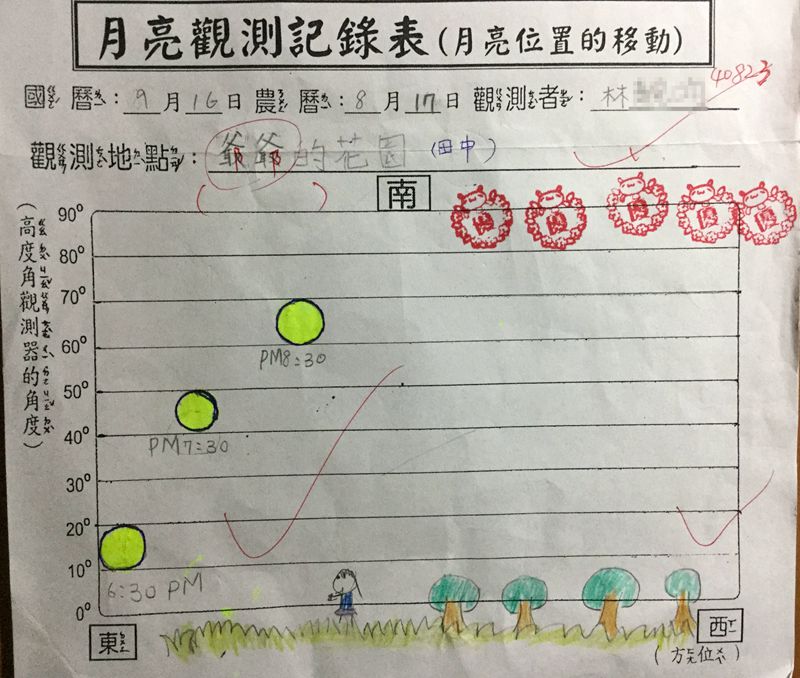 月亮觀測記錄表(月亮位置的移動)
國曆：9月16日 農曆：8月17日 觀測者：林
40823
觀測地點：爺爺的花園(田中)
南
(高度角觀測器的角度)
90°
80°
70°
60°
50°
40°
30°
20°
10°
0°
優 優 優 優 優
PM8:30
PM7:30
6:30 PM
東
西
(方位)